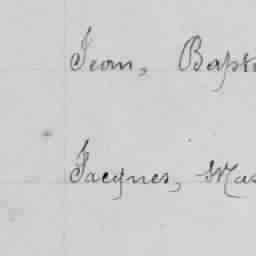 Jean, Bapt
Jacques, Ma